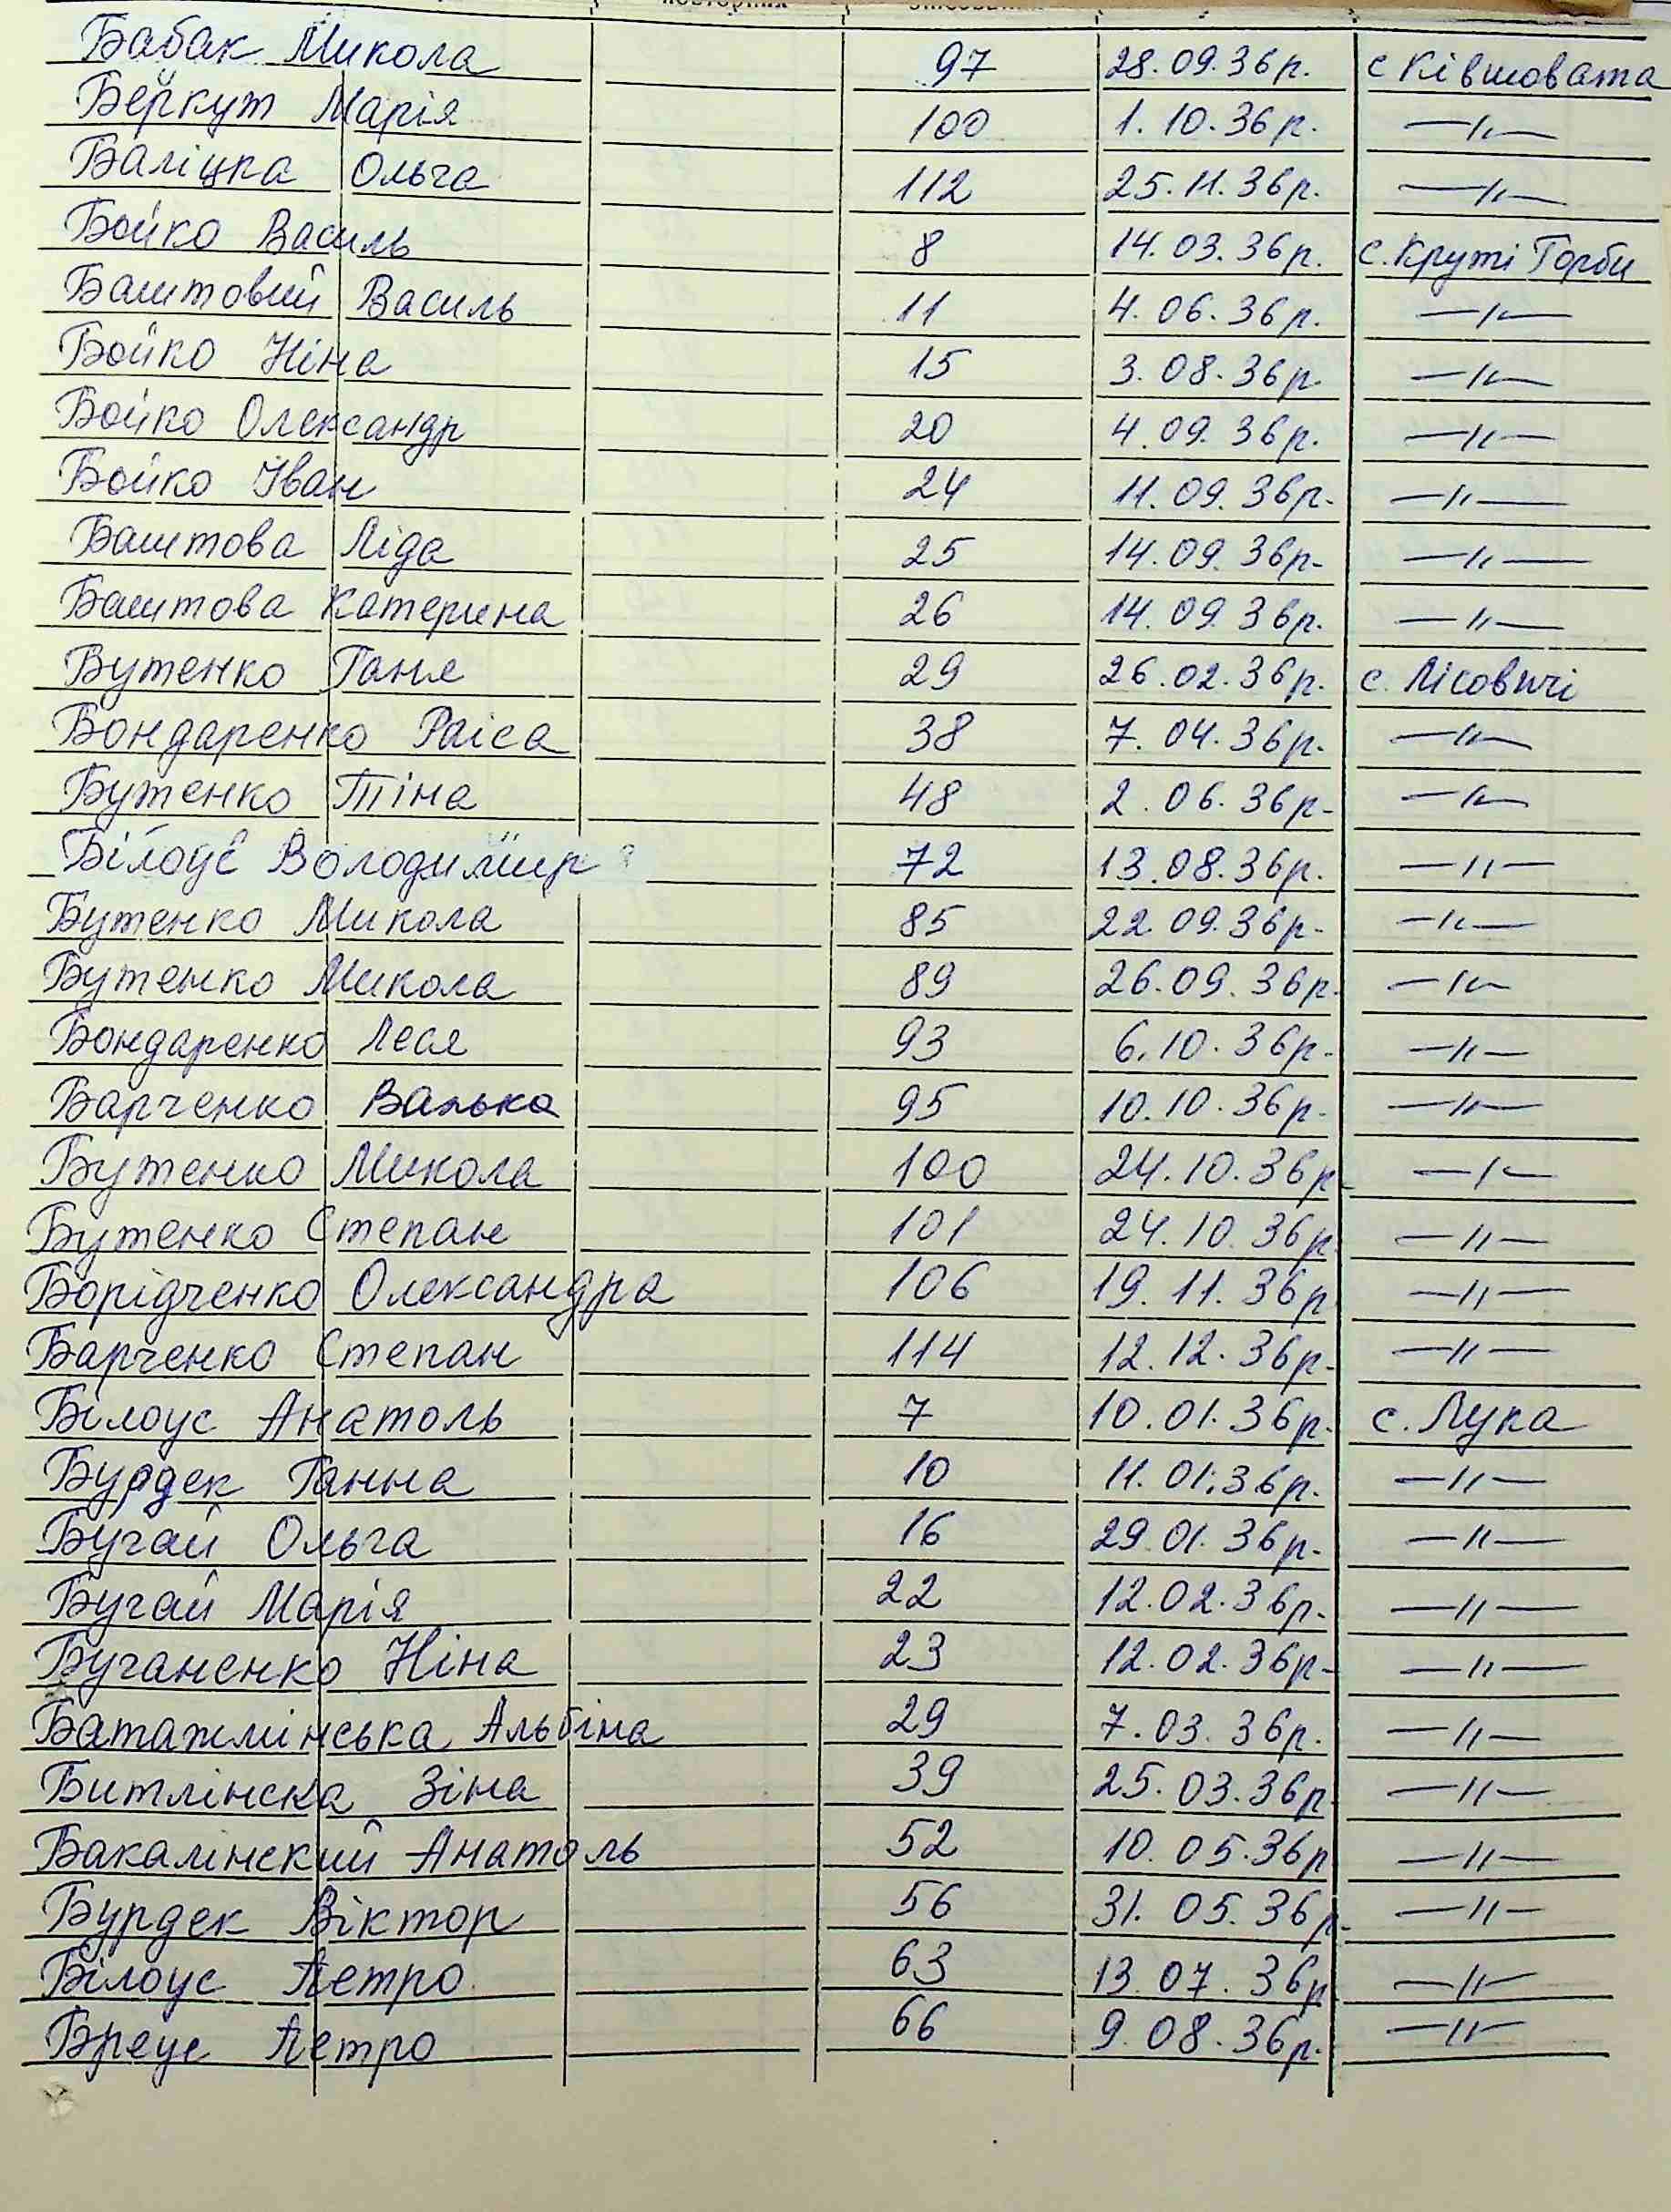 Бабак Микола 97 28.09.36р. с Ківшовата
Беркут Марія 100 1.10.36р. —"—
Баліцка Ольга 112 25.11.36р. —"—
Бойко Василь 8 14.03.36р. с. Круті Горби
Баштовий Василь 11 4.06.36р. —"—
Бойко Ніна 15 3.08.36р —"—
Бойко Олександр 20 4.09.36р. —"—
Бойко Іван 24 11.09.36р. —"—
Баштова Ліда 25 14.09.36р. —"—
Баштова Катерина 26 14.09.36р. —"—
Бутенко Ганя 29 26.02.36р. с. Лісовичі
Бондаренко Раіса 38 7.04.36р. —"—
Бутенко Тіна 48 2.06.36р. —"—
Білоус Володимир 72 13.08.36р. —"—
Бутенко Микола 85 22.09.36р. —"—
Бутенко Микола 89 26.09.36р. —"—
Бондаренко Леся 93 6.10.36р. —"—
Барченко Ванька 95 10.10.36р. —"—
Бутенко Микола 100 24.10.36р —"—
Бутенко Степан 101 24.10.36р —"—
Борідченко Олександра 106 19.11.36р —"—
Барченко Степан 114 12.12.36р. —"—
Білоус Анатоль 7 10.01.36р. с. Лука
Бурдек Ганна 10 11.01.36р. —"—
Бугай Ольга 16 29.01.36р. —"—
Бугай Марія 22 12.02.36р. —"—
Буганенко Ніна 23 12.02.36р. —"—
Батажлінська Альбіна 29 7.03.36р. —"—
Битлінска Зіна 39 25.03.36р —"—
Бакалінский Анатоль 52 10.05.36р —"—
Бурдек Віктор 56 31.05.36р. —"—
Білоус Петро 63 13.07.36р —"—
Бреус Петро 66 9.08.36р. —"—